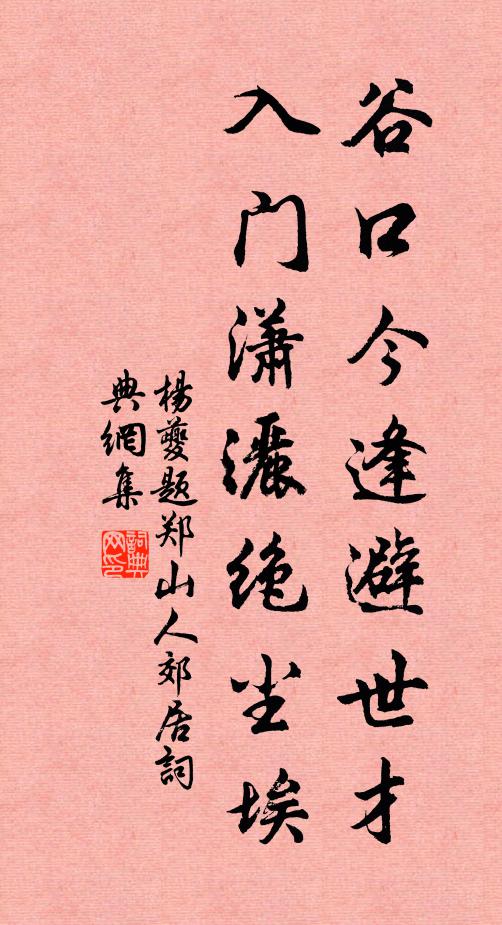 谷口今逢避世才
入门潇灑绝尘埃
楊夔题郑山人郊居詞
典網集
詞典网印